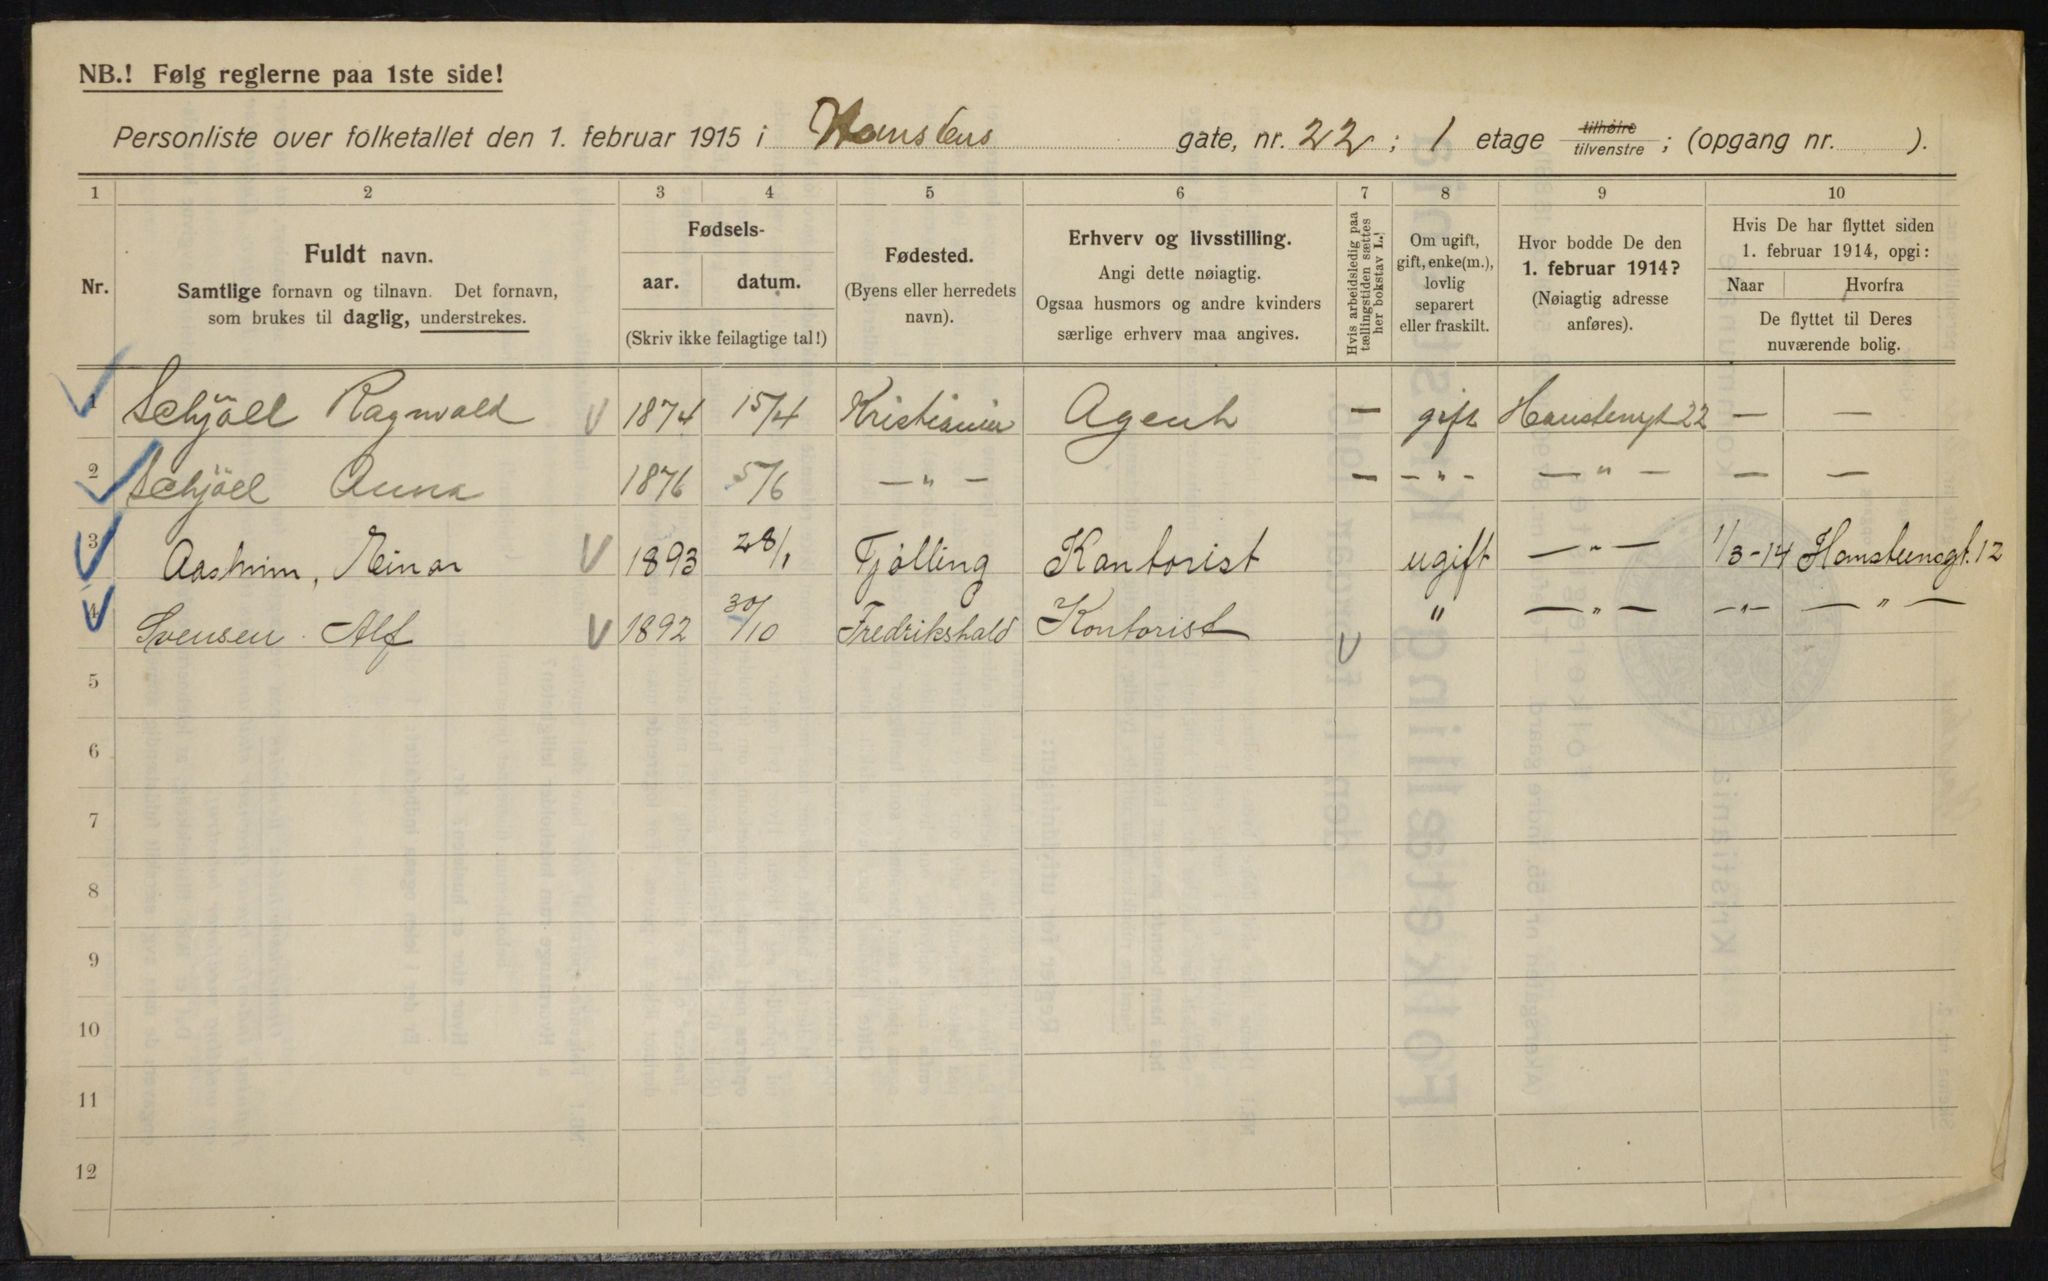 NB.! Følg reglerne paa 1ste side!
Personliste over folketallet den 1. februar 1915 i Hanstens gate, nr. 22 ; 1 etage tilhøire tilvenstre ; (opgang nr. ).
1 2 3 4 5 6 7 8 9 10
Nr.
Fuldt navn.
Samtlige fornavn og tilnavn. Det fornavn,
som brukes til daglig, understrekes.
Fødsels-
aar. datum.
(Skriv ikke feilagtige tal!)
Fødested.
(Byens eller herredets
navn).
Erhverv og livsstilling.
Angi dette nøiagtig.
Ogsaa husmors og andre kvinders
særlige erhverv maa angives.
Hvis arbeidsledig paa
tællingstiden sættes
her bokstav L.
Om ugift,
gift, enke(m.),
lovlig
separert
eller fraskilt.
Hvor bodde De den
1. februar 1914?
(Nøiagtig adresse
anføres).
Hvis De har flyttet siden
1. februar 1914, opgi:
Naar Hvorfra
De flyttet til Deres
nuværende bolig.
1 Schjöll Ragnvald 1874 15/4 Kristiania Agent — gift Hanstensgt 22 — —
2 Schjöll Anna 1876 5/6 — " — — — " — — " — — —
3 Aasheim, Einar 1893 28/1 Tjølling Kontorist ugift — " — 1/3-14 Hansteensgt. 12
4 Svensen Alf 1892 30/10 Fredrikshald Kontorist " — " — — " — — " —
5
6
7
8
9
10
11
12